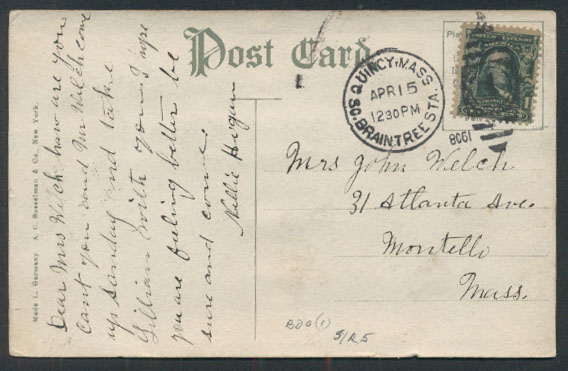 Post Card
QUINCY, MASS.
APR 15
12 30 PM
SO. BRAINTREE STA.
1908
Mrs John Welch
31 Atlanta Ave.
Montello
Mass.
Dear Mrs Welch how are you
Can't you and Mr Welch come
up Sunday and take
Lillian with you I hope
you are feeling better be
sure and come
Nellie
Made in Germany. A. C. Bosselman & Co., New York.